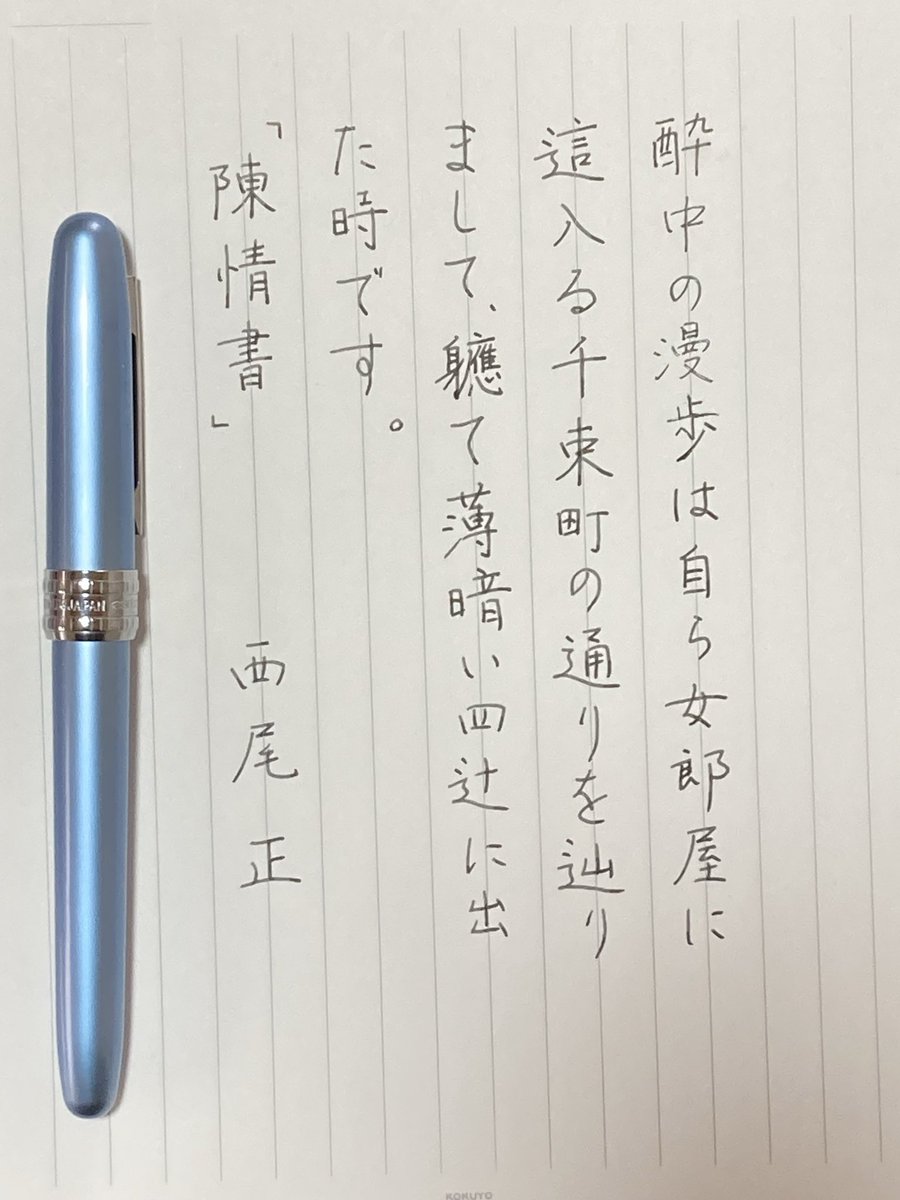 酔中の漫歩は自ら女郎屋に
這入る千束町の通りを辿り
まして、軈て薄暗い四辻に出
た時です。
「陳情書」　西尾正
JAPAN
KOKUYO